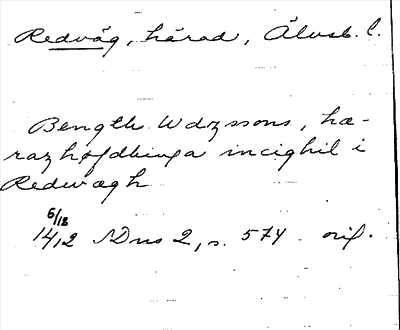 Redväg, härad, Älvsb. l.
Bength Wdzssons, hæ-
razhøfdhinga incighil i
Redwægh
6/12
1412 SDns 2, s. 574. orig.